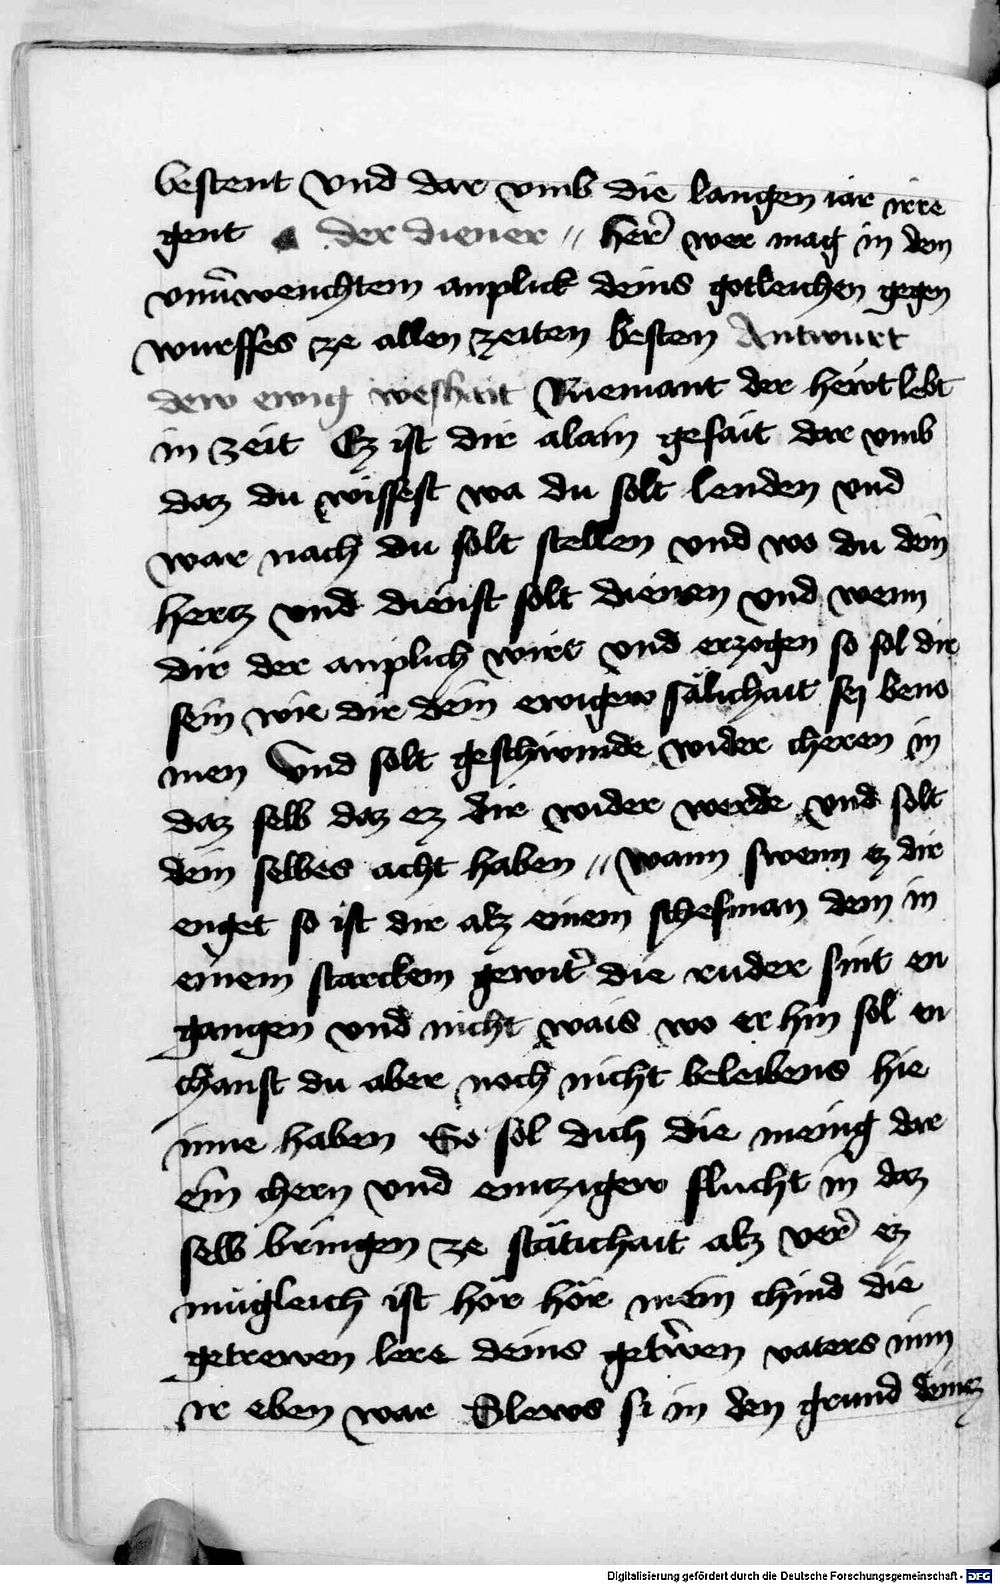 bestent vnd dar vmb die langen iar irre
gent der diener // her̃ wer mag in dem
vnuerwenchtem anplick deins gotleichen gegen
wurffes ze allen zeiten besten Antwurt
dew ewig weshait Niemant der hewt lebt
in zeit Ez ist dir alain gesait dar vmb
daz du wissest wa du solt lenden vnd
war nach du solt stellen vnd wo du dein
hertz vnd dienst solt dienen vnd wenn
dir der anplich wirt vnd erzogen so sol dir
sein wie dir dein ewigew sälichait sej beno
men Vnd solt geschwinde wider cheren in
daz selb daz ez dir wider werde vnd solt
dein selbes acht haben // wann swenn ez dir
enget so ist dir alz einem schefman dem in
einem starckem gewitr̃ die ruder sint en
gangen vnd nicht wais wo er hin sol en
chanst du aber noch nicht beleibens hie
inne haben So sol dich die menig dar
ein chern vnd emtzigew flucht in daz
selb bringen ze stätichait alz ver̃ ez
mügleich ist hör hör mein chind die
getrewen lere deins getr̃wen vaters nim
ir eben war Slews si in den grund deinez
Digitalisierung gefördert durch die Deutsche Forschungsgemeinschaft - DFG